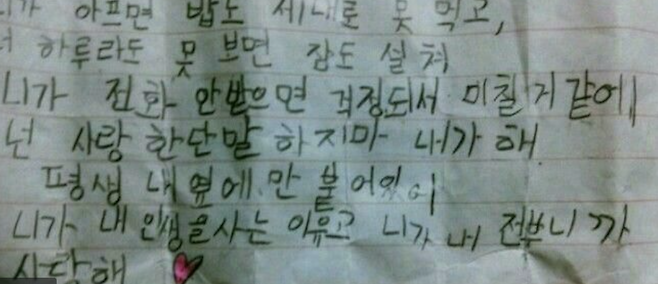 니가 아프면 밥도 제대로 못 먹고,
너 하루라도 못 보면 잠도 설쳐
니가 전화 안받으면 걱정되서 미칠거같애
넌 사랑 한단말 하지마 내가 해
평생 내 옆에만 붙어있어
니가 내 인생을 사는 이유고 니가 내 전부니까
사랑해